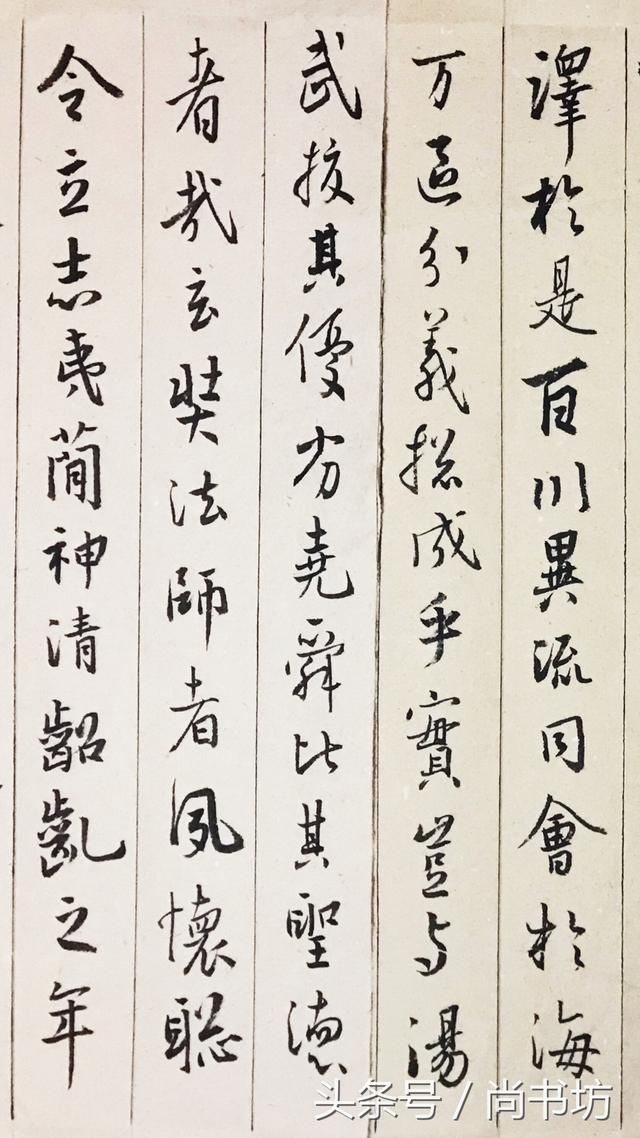 澤於是百川異流同會於海
万區分義摠成乎實豈與湯
武挍其優劣堯舜比其聖德
者哉玄奘法師者夙懷聡
令立志夷蕳神清齠齓之年
头条号 / 尚书坊